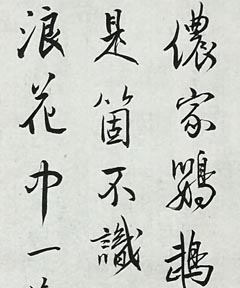 儂家鸚鵡
是箇不識
浪花中一